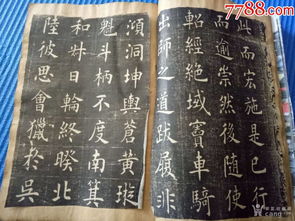 7788.com
此而宏施是已行
而遡崇然後隨使
軺經絶域賓車騎
出師之道跋履非
澒洞坤輿蒼黄璇
魁斗柄不度南箕
和昧日輪終睽北
陸彼思會獵於吳